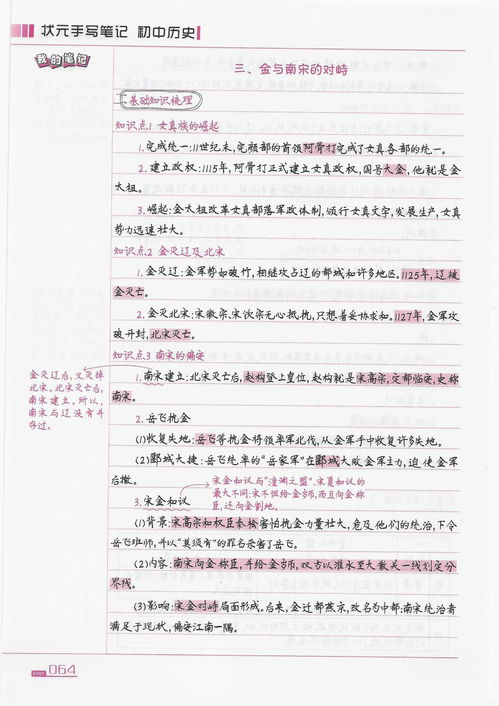 状元手写笔记 初中历史
我的笔记
三、金与南宋的对峙
基础知识梳理
知识点1 女真族的崛起
1.完成统一:11世纪末,完颜部的首领阿骨打完成了女真各部的统一。
2.建立政权:1115年,阿骨打正式建立女真政权,国号大金,他就是金
太祖。
3.崛起:金太祖改革女真部落军政体制,颁行女真文字,发展生产,女真
势力迅速壮大。
知识点2 金灭辽及北宋
1.金灭辽:金军势如破竹,相继攻占辽的都城和许多地区。1125年,辽被
金灭亡。
2.金灭北宋:宋徽宗、宋钦宗无心抵抗,只想着妥协求和。1127年,金军攻
破开封,北宋灭亡。
知识点3 南宋的偏安
金灭辽后,又灭掉
北宋。北宋灭亡后,
南宋建立。所以,
南宋与辽没有并
存过。
1.南宋建立:北宋灭亡后,赵构登上皇位,赵构就是宋高宗,定都临安,史称
南宋。
2.岳飞抗金
(1)收复失地:岳飞等抗金将领率军北伐,从金军手中收复许多失地。
(2)郾城大捷:岳飞统率的“岳家军”在郾城大败金军主力,迫使金军
后撤。
宋金和议与“澶渊之盟”、宋夏和议的
最大不同:宋不但给金岁币,而且向金称
臣,还向金割地。
3.宋金和议
(1)背景:宋高宗和权臣秦桧害怕抗金力量壮大,危及他们的统治,下令
岳飞班师,并以“莫须有”的罪名杀害了岳飞。
(2)内容:南宋向金称臣,并给金岁币,双方以淮水至大散关一线划定分
界线。
(3)影响:宋金对峙局面形成。后来,金迁都燕京,改名为中都;南宋统治者
满足于现状,偏安江南一隅。
page 064